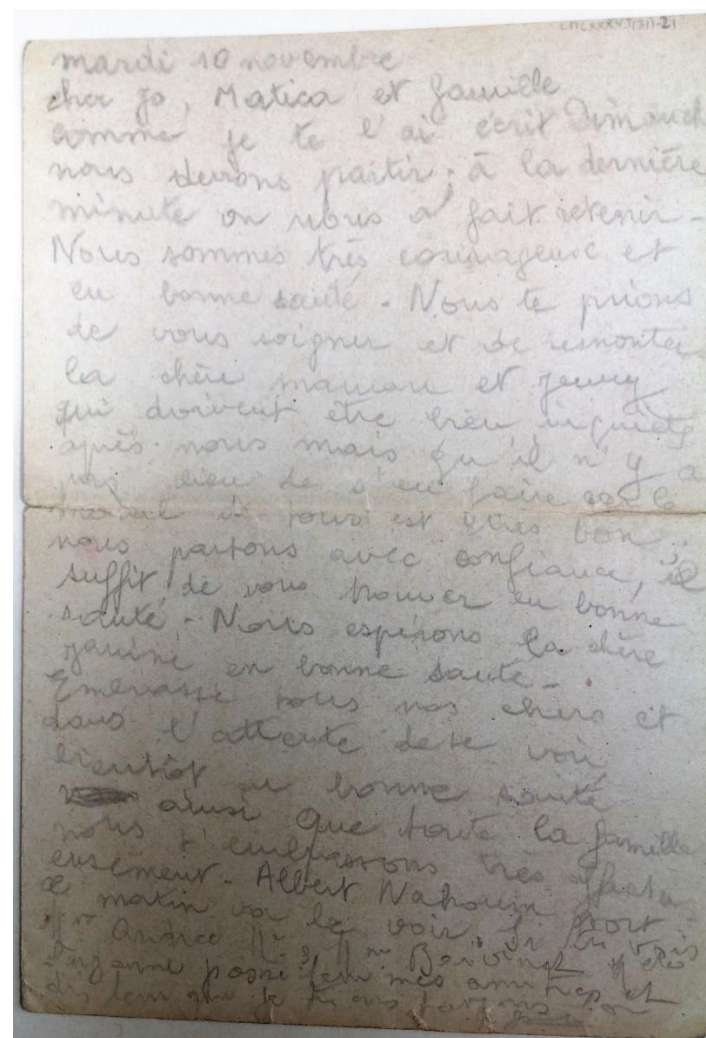 CMLXXXVI(31)-21
mardi 10 novembre
cher Jo, Matica et famille
comme je te l'ai écrit Dimanch
nous devons partir, à la dernière
minute on nous a fait retenir -
Nous sommes très courageux et
en bonne santé. Nous te prions
de vous soigner et de remonter
la chère maman et Jenny
qui doivent être bien inquiets
après nous mais qu'il n'y a
pas lieu de s'en faire car le
moral de tous est très bon,
nous partons avec confiance, il
suffit de vous trouver en bonne
santé. - Nous espérons la chère
Janine en bonne santé -
Embrasse tous nos chers et
dans l'attente de te voir
bientôt en bonne santé
ainsi que toute la famille
nous t'embrassons très affectu-
eusement - Albert Nahoum sort
ce matin va le voir. Si tu vois
Mme Andrée Mr & Mme
Suzanne mes amitiés et
dis leur que je